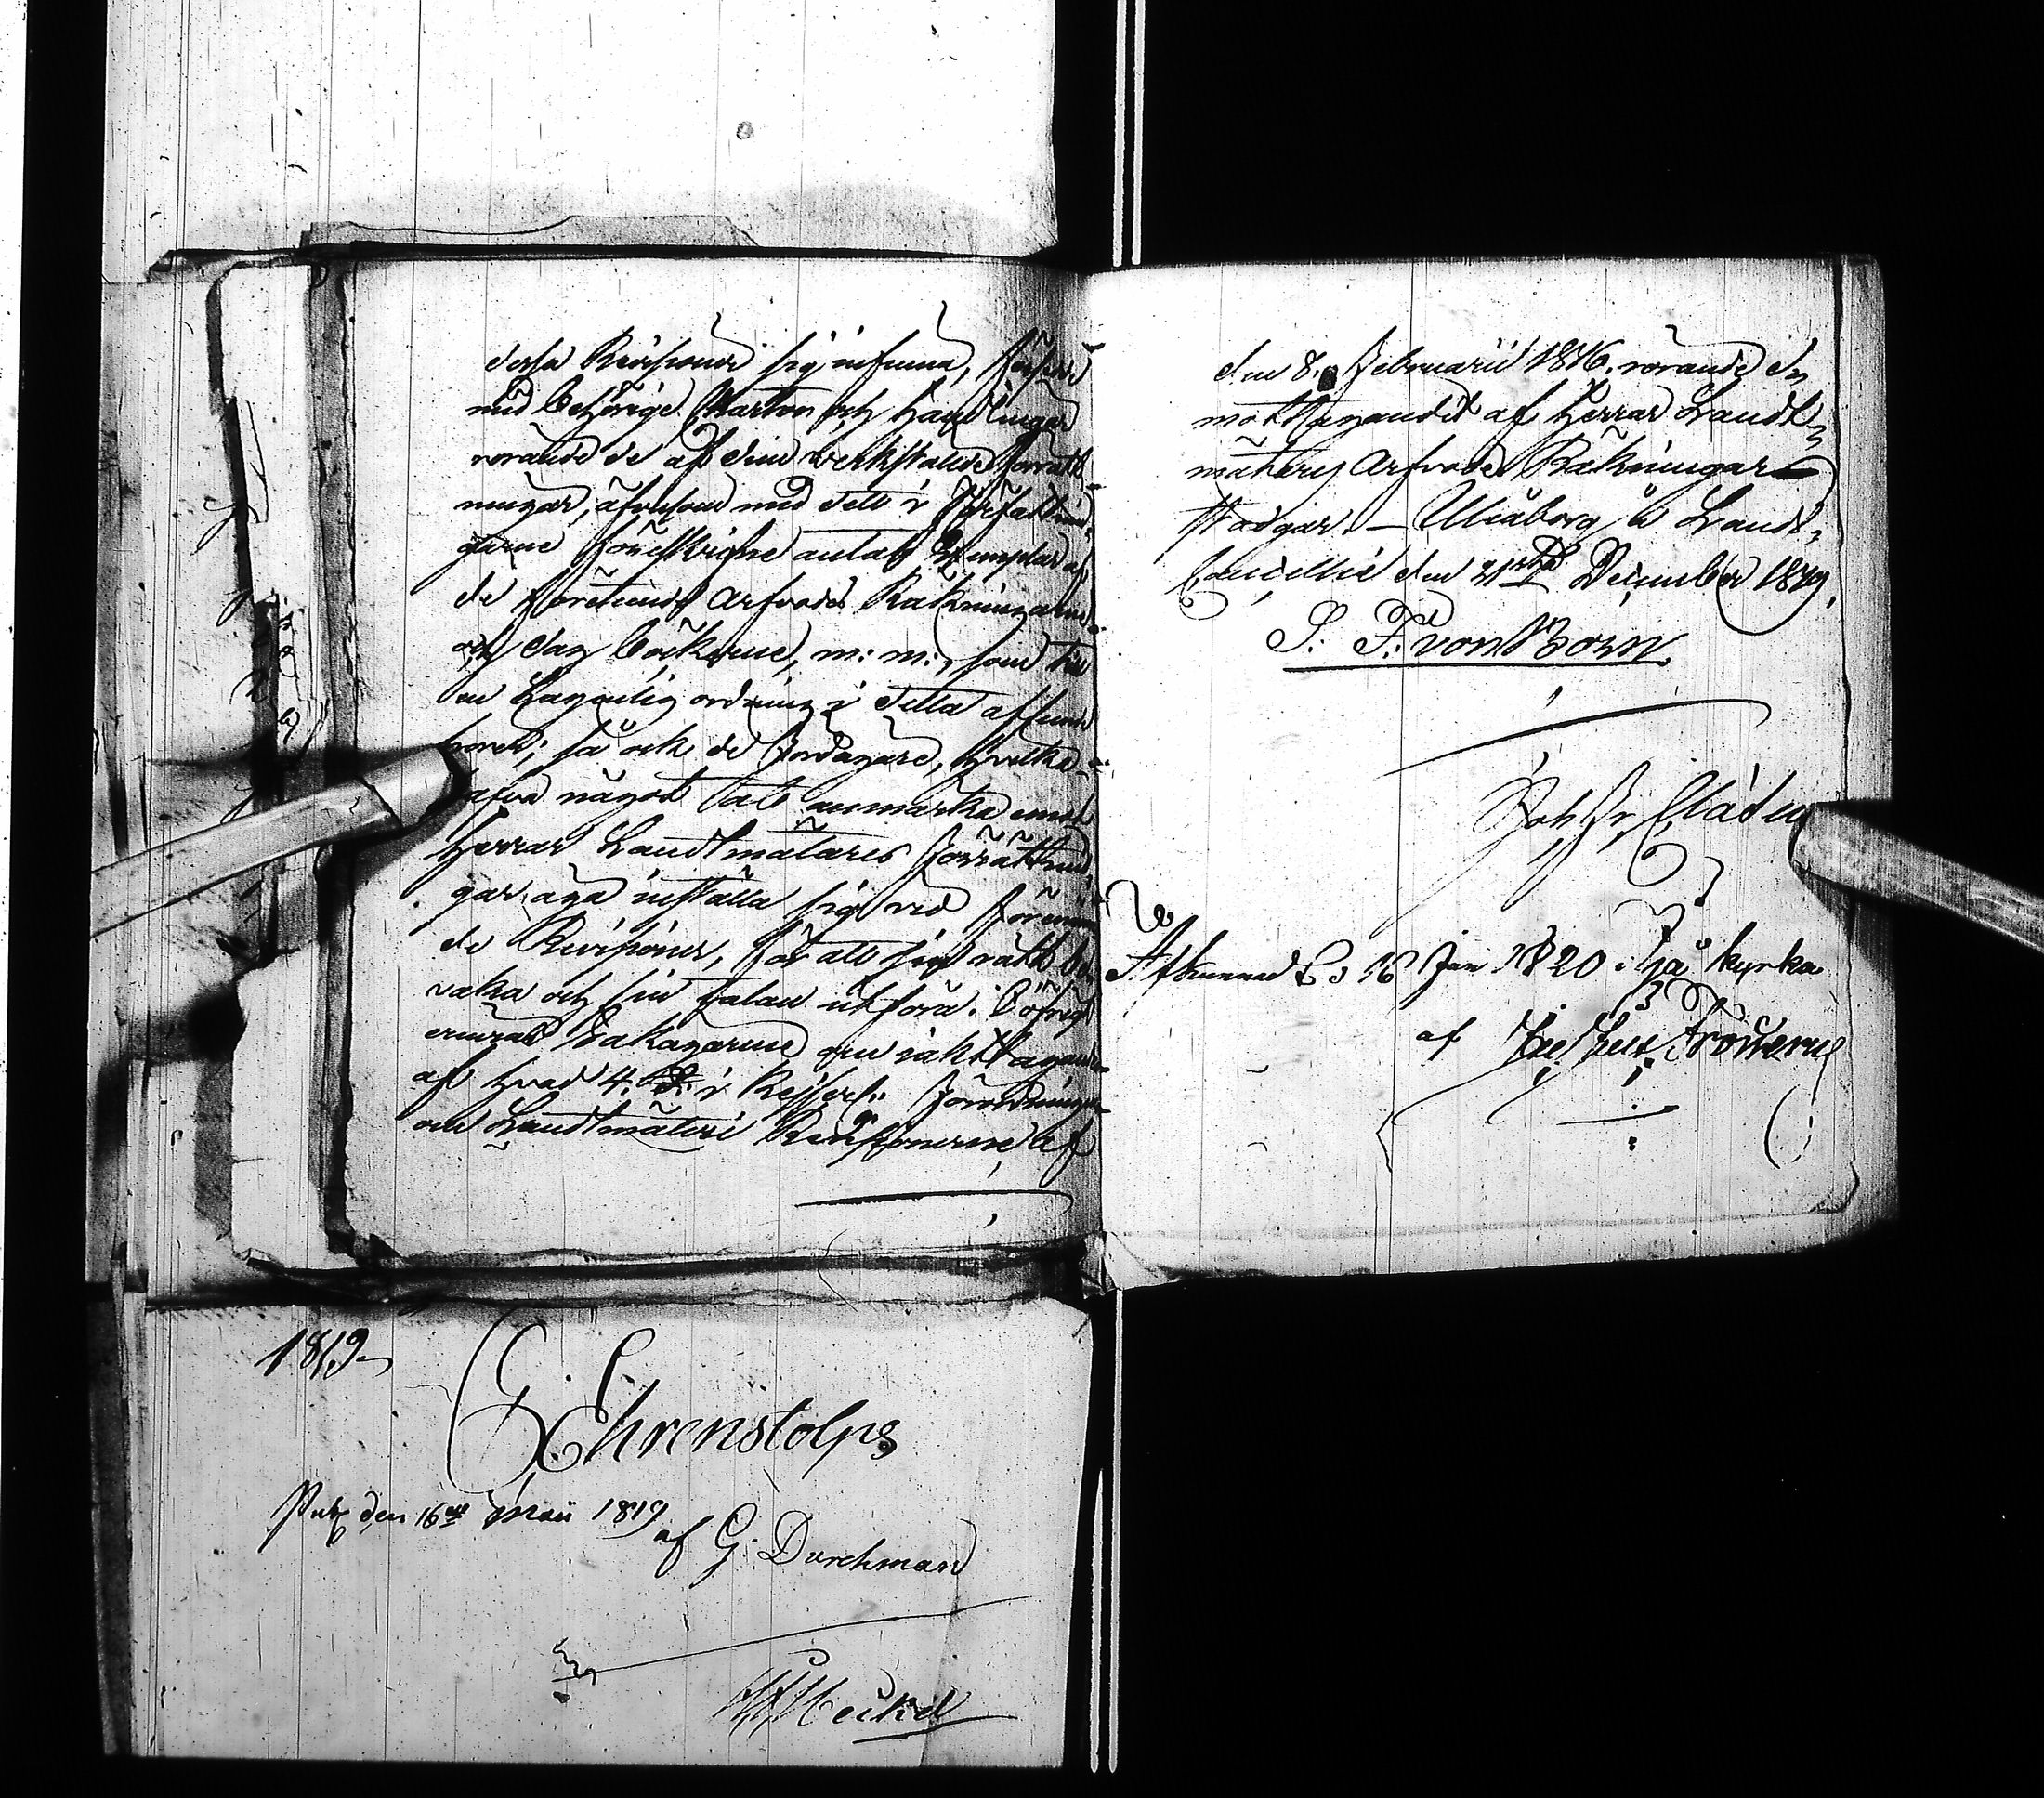 dessa Revisioner sig infinna, försedde
med behörige Chartor och Handlingar
rörande de af dem verkställde förrätt
ningar, äfvensom med dett i Författnin
garne föreskrifne antal Exemplar af
de förebemälte Arfvodes Räkningarne
och Dag böckerne, m: m:, som till
en Lagenlig ordning i detta afseende
hörer; så ock de Jordägare, hvilka
hafva något att anmärka emot
Herrar Landtmätares Förrättnin
gar, äga inställa sig vid förenämn
de Revisioner, för att sig rätt be
vaka och sin talan utföra. Öfrigt
erinras Sakägarne om iakttagande
af hvad 4. §. i Kejserl: Förordningen
om Landtmäteri Revisionerne af
den 8. Februarii 1816. rörande
mottagandet af Herrar Landt
mäteris Arfvodes Räkningar
stadgar. — Uleåborg i Lands
Cancellie den 21sta December 1819.
S. F. von Born
Joh. Fr. Eladen
Afkunnad d 16 Jan 1820 i Ijå kyrka
af Frosterus
1819
G. Ehrenstolpe
Pub den 16de Maii 1819
af G. Durchman